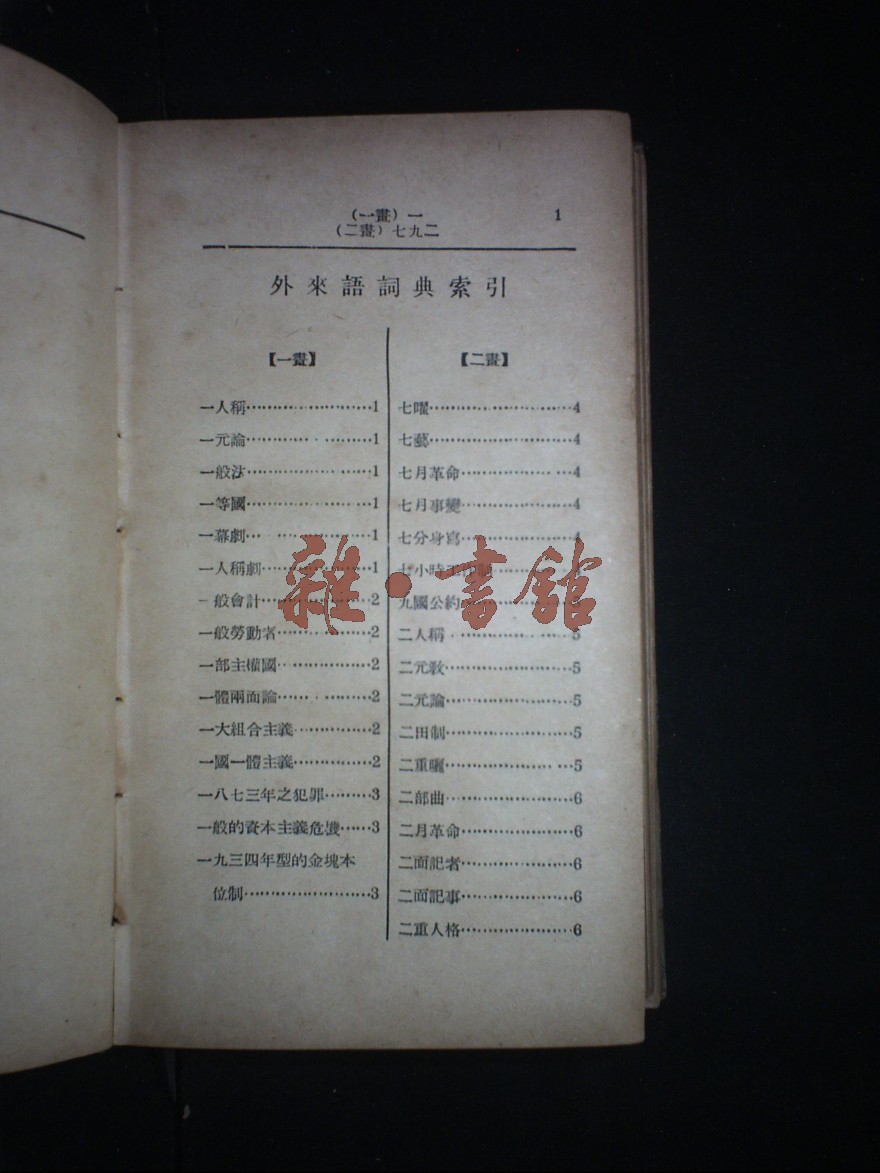 (一畫) 一
1
(二畫) 七九二
外來語詞典索引
【一畫】
一人稱……………………1
一元論……………………1
一般法……………………1
一等國……………………1
一幕劇……………………1
一人稱劇…………………1
一般會計…………………2
一般勞動者………………2
一部主權國………………2
一體兩面論………………2
一大組合主義……………2
一國一體主義……………2
一八七三年之犯罪………3
一般的資本主義危機……3
一九三四年型的金塊本
位制……………………3
【二畫】
七曜………………………4
七藝………………………4
七月革命…………………4
七月事變…………………4
七分身寫…………………4
七小時
九國公約…………………
二人稱……………………5
二元教……………………5
二元論……………………5
二田制……………………5
二重曬……………………5
二部曲……………………6
二月革命…………………6
二面記者…………………6
二面記事…………………6
二重人格…………………6
雜·書館